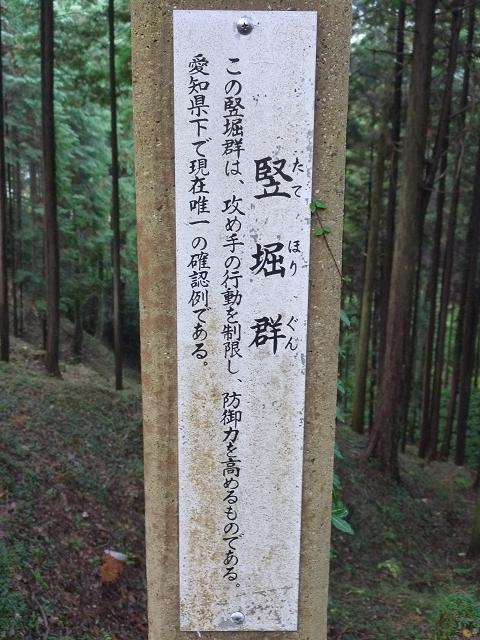 竪堀群
たてほりぐん
この竪堀群は、攻め手の行動を制限し、防御力を高めるものである。
愛知県下で現在唯一の確認例である。